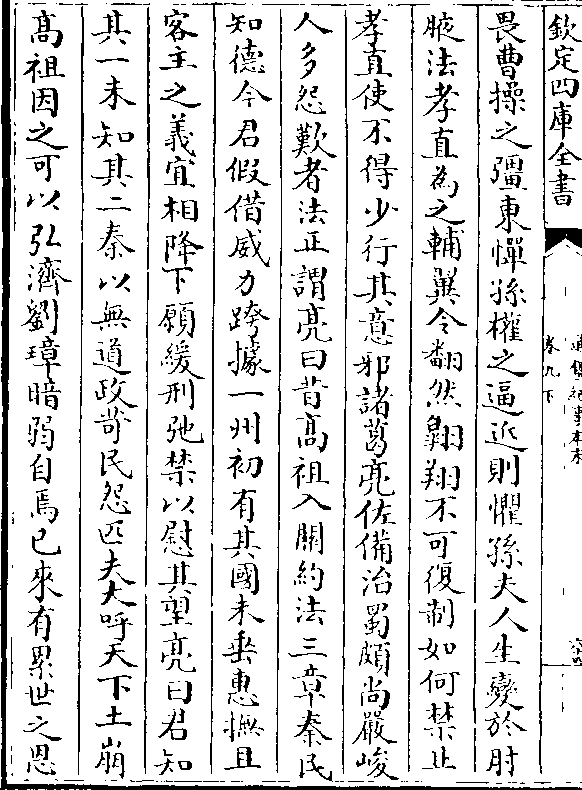 欽定四庫全書
通鑑紀事本末
卷九下
畏曹操之彊東憚孫權之逼近則懼孫夫人生變於肘
腋法孝直為之輔翼令翻然翺翔不可復制如何禁止
孝直使不得少行其意邪諸葛亮佐備治蜀頗尚嚴峻
人多怨歎者法正謂亮曰昔髙祖入關約法三章秦民
知德今君假借威力跨據一州初有其國未垂惠撫且
客主之義宜相降下願緩刑弛禁以慰其望亮曰君知
其一未知其二秦以無道政苛民怨匹夫大呼天下土崩
髙祖因之可以弘濟劉璋暗弱自焉已來有累世之恩